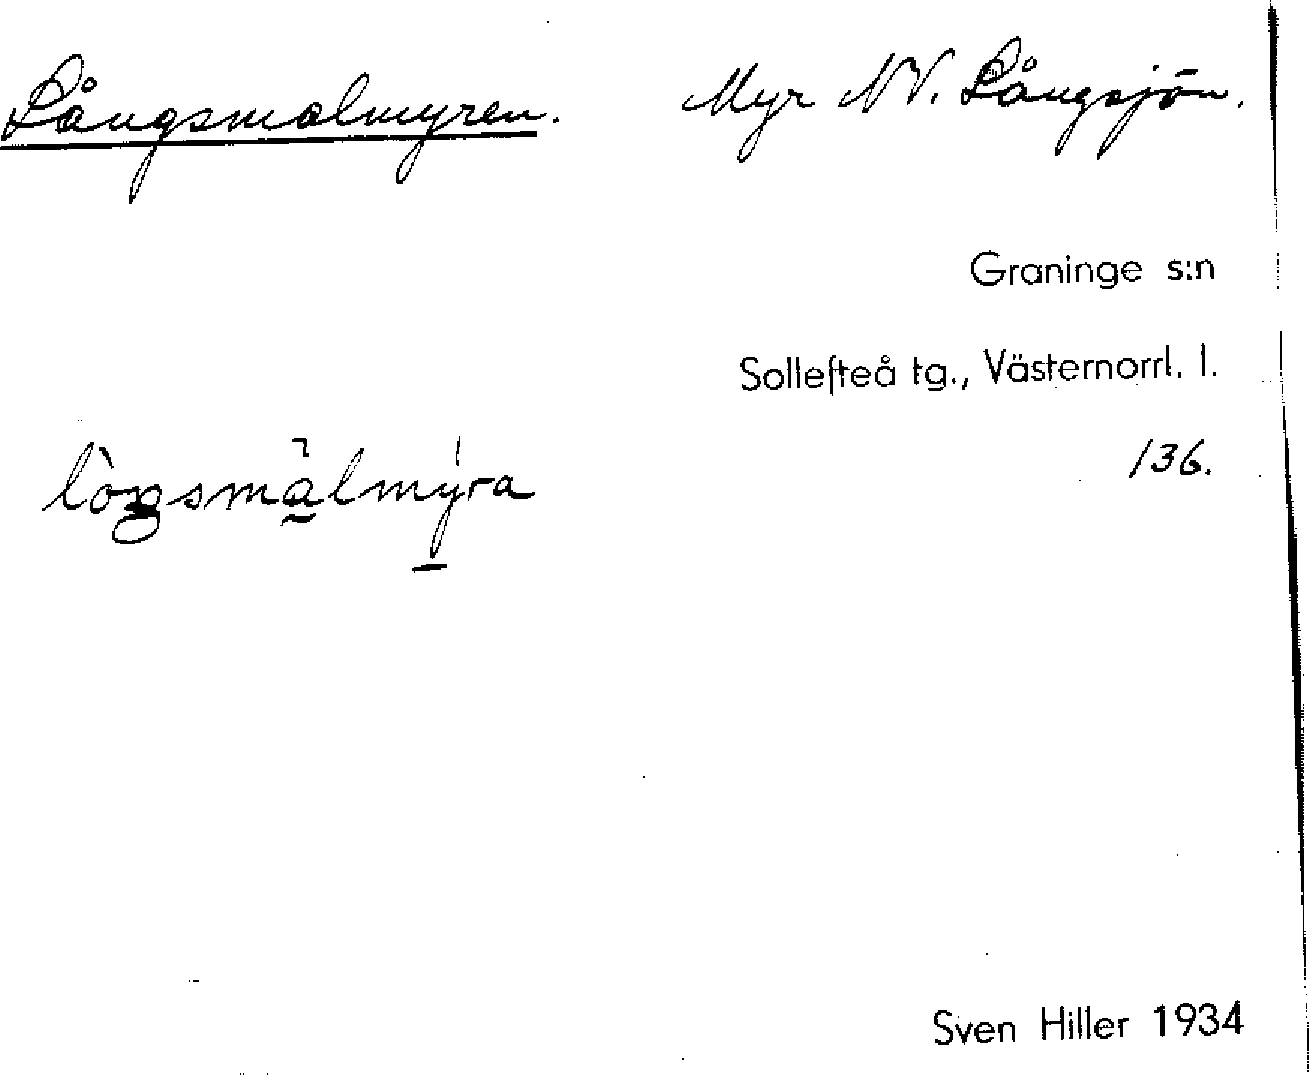 Långsmalmyren. Myr NV. Långsjön.
Graninge s:n
Sollefteå tg., Västernorrl. l.
136.
Sven Hiller 1934